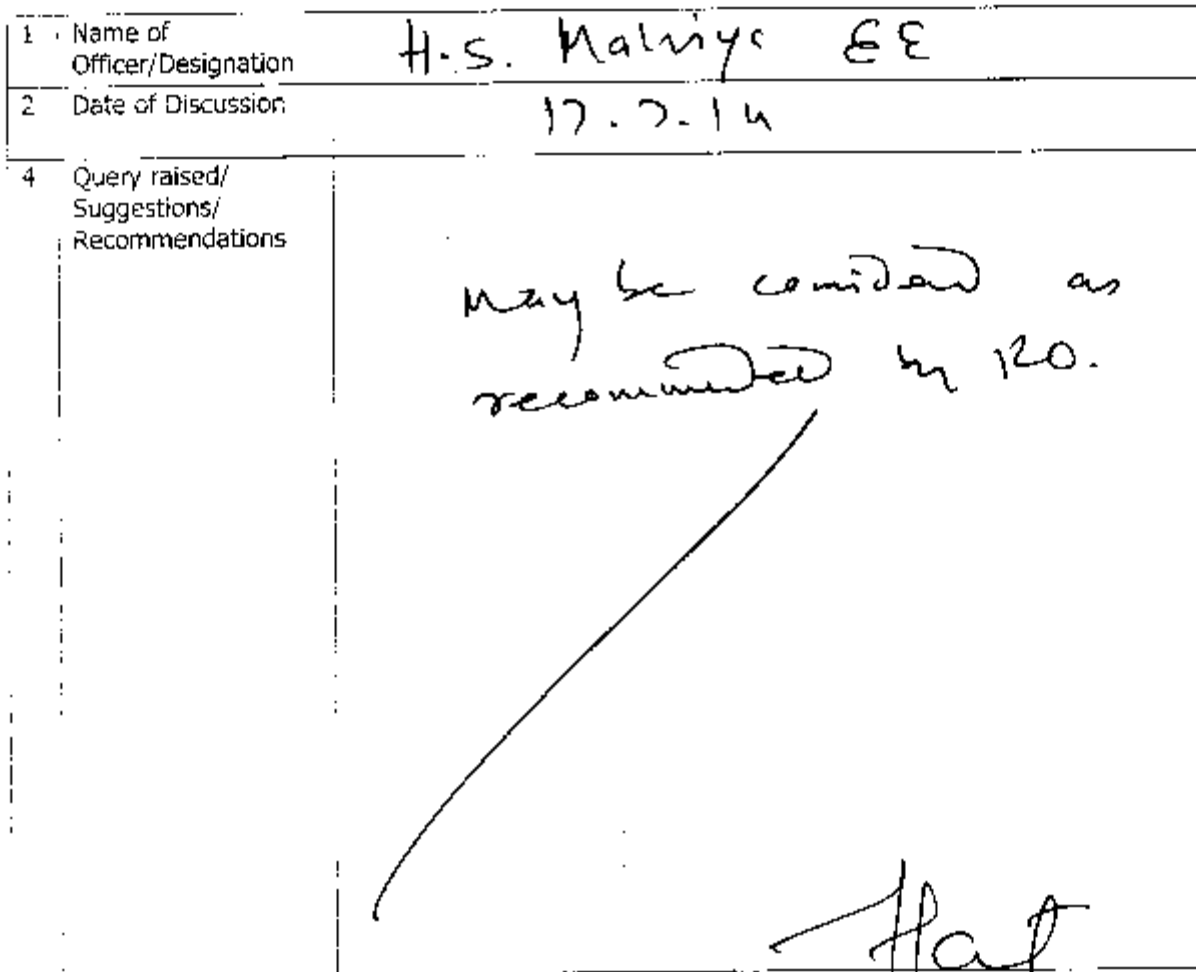 1 Name of Officer/Designation H.S. Malviya EE
2 Date of Discussion 17.7.14
4 Query raised/
Suggestions/
Recommendations
May be considered as
recommended by RO.